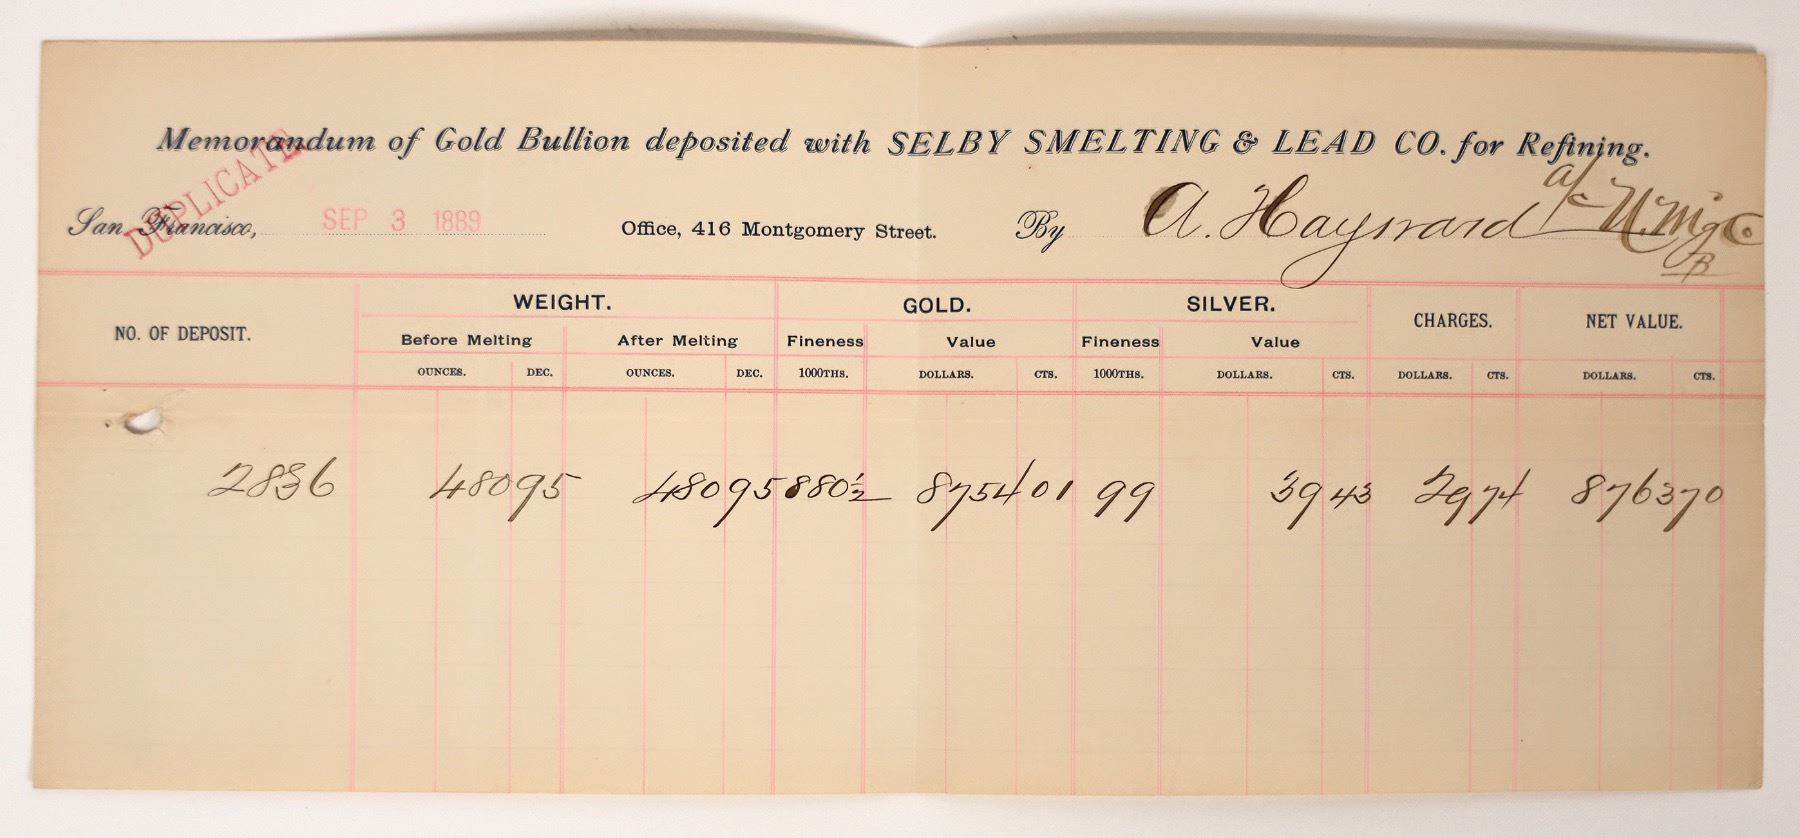 Memorandum of Gold Bullion deposited with SELBY SMELTING & LEAD CO. for Refining.
DUPLICATE
San Francisco, SEP 3 1889 Office, 416 Montgomery Street. By A. Hayward a/c U. Mg Co
B
NO. OF DEPOSIT. WEIGHT. GOLD. SILVER. CHARGES. NET VALUE.
Before Melting After Melting Fineness Value Fineness Value
OUNCES. DEC. OUNCES. DEC. 1000THS. DOLLARS. CTS. 1000THS. DOLLARS. CTS. DOLLARS. CTS. DOLLARS. CTS.
2836 480 95 480 95 880½ 8754 01 99 39 43 29 74 8763 70